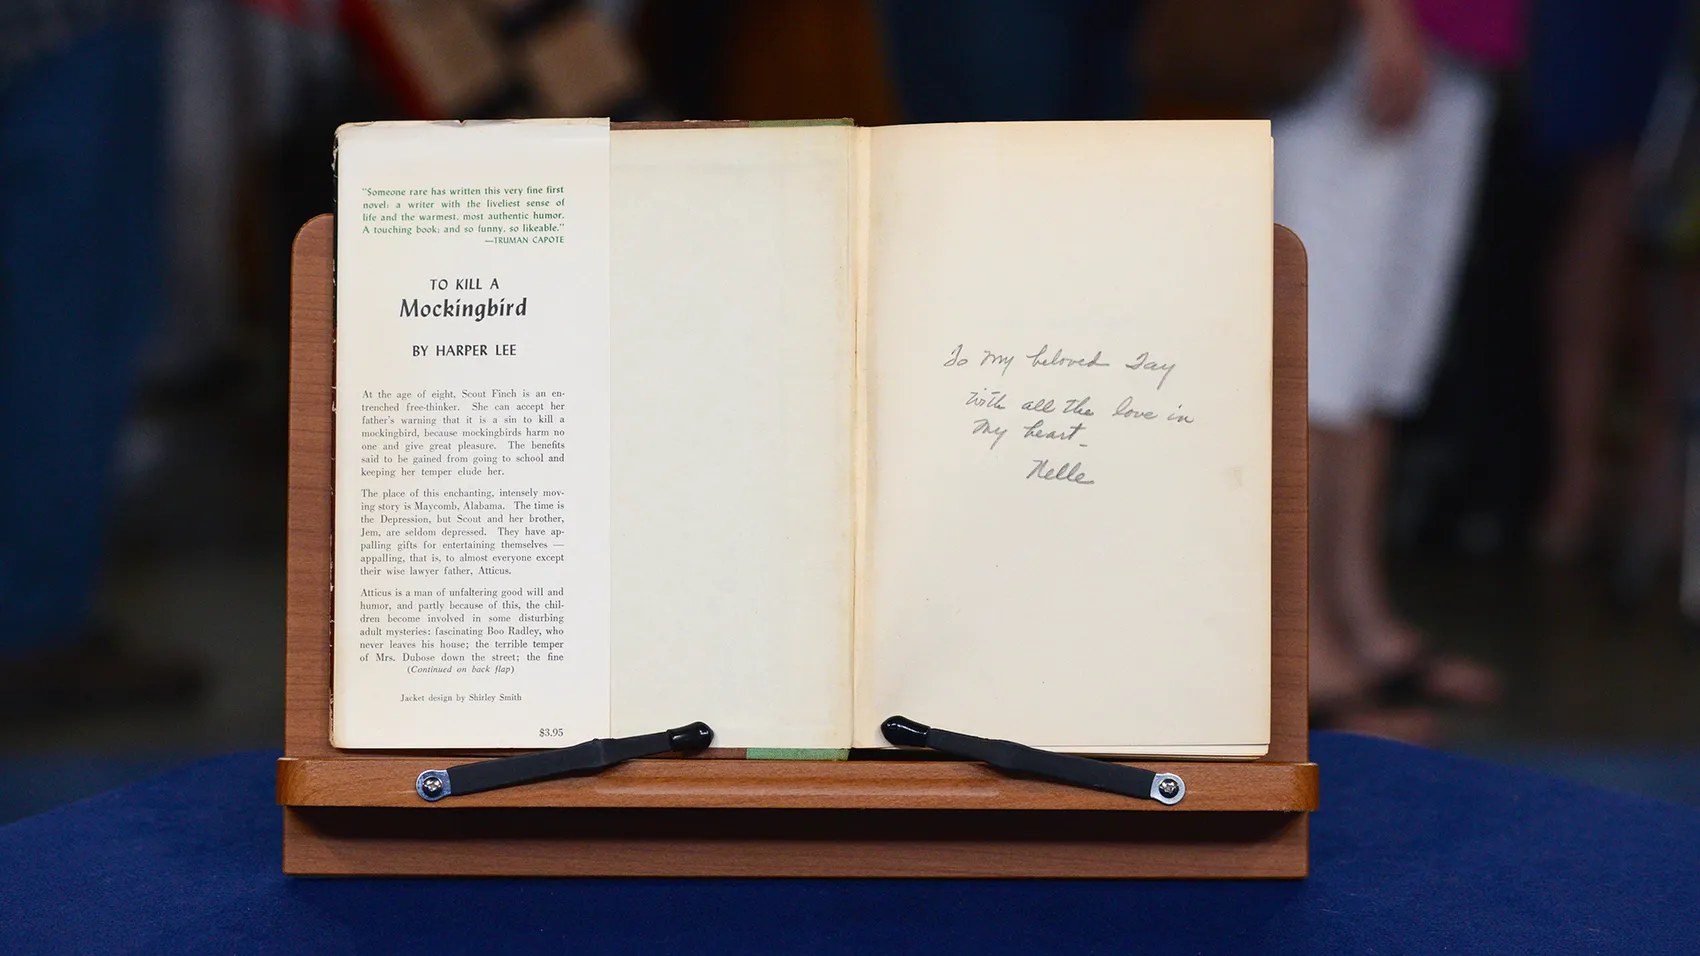 "Someone rare has written this very fine first
novel: a writer with the liveliest sense of
life and the warmest, most authentic humor.
A touching book; and so funny, so likeable."
—TRUMAN CAPOTE
TO KILL A
Mockingbird
BY HARPER LEE
At the age of eight, Scout Finch is an en-
trenched free-thinker. She can accept her
father's warning that it is a sin to kill a
mockingbird, because mockingbirds harm no
one and give great pleasure. The benefits
said to be gained from going to school and
keeping her temper elude her.
The place of this enchanting, intensely mov-
ing story is Maycomb, Alabama. The time is
the Depression, but Scout and her brother,
Jem, are seldom depressed. They have ap-
palling gifts for entertaining themselves —
appalling, that is, to almost everyone except
their wise lawyer father, Atticus.
Atticus is a man of unfaltering good will and
humor, and partly because of this, the chil-
dren become involved in some disturbing
adult mysteries: fascinating Boo Radley, who
never leaves his house; the terrible temper
of Mrs. Dubose down the street; the fine
(Continued on back flap)
Jacket design by Shirley Smith
$3.95
To my beloved Tay
with all the love in
my heart—
Nelle